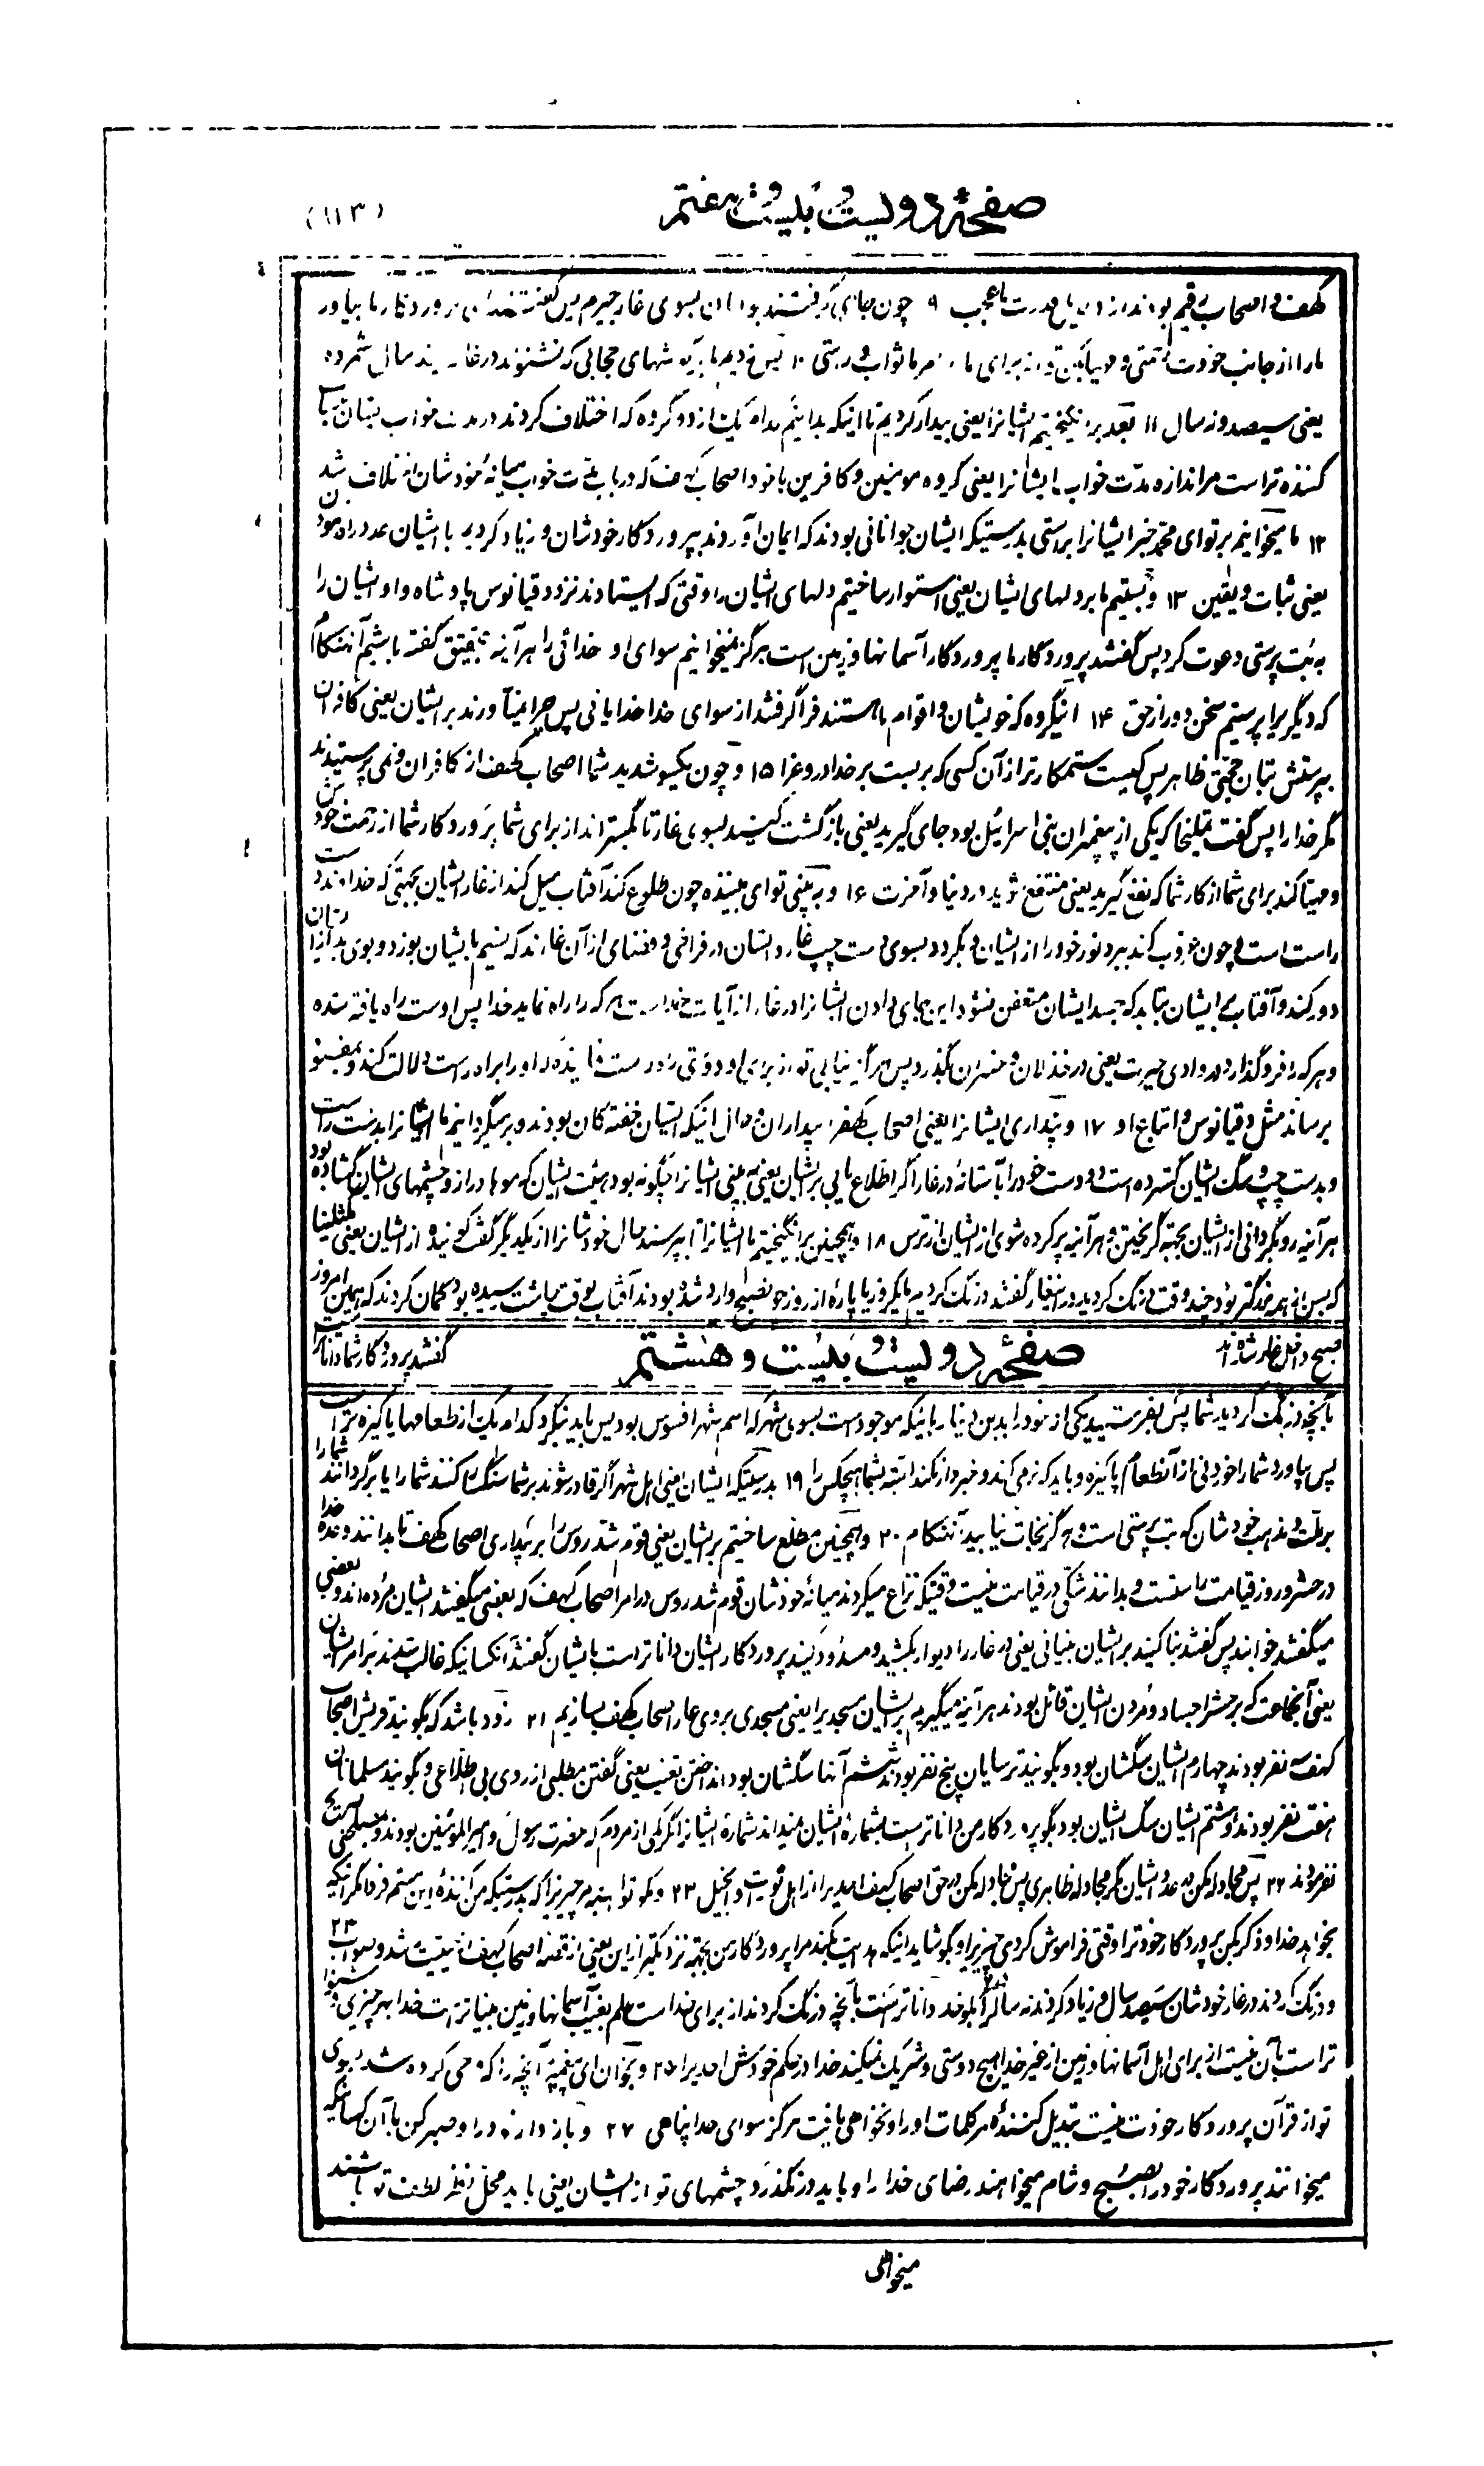 صفحهٔ دویست و بیست و هفتم
(۱۱۳)
کهف و اصحاب رقیم بودند از قدرت ما عجب ۹ چون جای گرفتند بسوی غار پس گفتند پروردگار ما بیاور
ما را از جانب خودت رحمتی و مهیا کن از برای ما ثواب و رستی ۱۰ پس بگوشهای حجابی که نشنوند در غار چند سال شمرده
یعنی سیصد و نه سال ۱۱ بعد برانگیختیم ایشانرا یعنی بیدار کردیم تا اینکه بدانیم کدام یک از دو گروه که اختلاف کردند در مدت خواب
کننده تر است مر اندازه مدّت خواب ایشانرا یعنی گروه مومنین و کافرین یا خود اصحاب کهف که در باب مدّت خواب میانهٔ خودشان اختلاف شد
۱۲ ما میخوانیم بر تو ای محمّد خبر ایشانرا براستی بدرستیکه ایشان جوانانی بودند که ایمان آوردند بپروردگار خودشان و زیاد کردیم با ایشان
یعنی ثبات و یقین ۱۳ و بستیم ما بر دلهای ایشان یعنی استوار ساختیم دلهای ایشان را وقتی که ایستادند نزد دقیانوس پادشاه و او ایشان را
به بت پرستی دعوت کرد پس گفتند پروردگار ما پروردگار آسمانها و زمین است هرگز نمیخوانیم سوای او خدائی را هر آینه بتحقیق گفته باشیم آنهنگام
که دیگریرا پرستیم سخن دور از حق ۱۴ اینگروه که خویشان و اقوام ما هستند فرا گرفتند از سوای خدا خدایانی پس چرا نمیآورند بر ایشان یعنی کافران
بپرستش بتان حجّتی ظاهر پس کیست ستمکارتر از آن کسی که بر بست بر خدا دروغرا ۱۵ و چون یکسو شدید شما اصحاب کهف از کافران و نمی پرستیدند
مگر خدا را پس گفت تملیخا که یکی از پیغمبران بنی اسرائیل بود جای گیرید یعنی بازگشت کنید بسوی غار تا بگستراند از برای شما پروردگار شما از رحمت خود
و مهیّا کند برای شما از کار شما که نفع گیرید یعنی منتفع شوید در دنیا و آخرت ۱۶ و به بینی تو ای بیننده چون طلوع کند آفتاب میل کند از غار ایشان بجهتی که
راست است و چون غروب کند ببرد نور خود را از ایشان و بگردد بسوی دست چپ غار و ایشان در فراخی و فضای از آن غارند که نسیم بایشان بوزد و بوی بد
دور کند و آفتاب بر ایشان نتابد که جسد ایشان متعفن نشود این جای دادن ایشانرا در غار از آیات خداست هر که را راه نماید خدا پس اوست راه یافته شده
و هر که را فرو گذارد در وادی حیرت یعنی در خذلان و خسران بگذرد پس هرگز نیابی تو از برای او دوستی راه راست نماینده که او را براه راست دلالت کند
برساند مثل دقیانوس و اتباع او ۱۷ و پنداری ایشانرا یعنی اصحاب کهف را بیداران و حال آنکه ایشان خفته گان بودند و بر میگردانیم ما ایشانرا بدست راست
و بدست چپ و سگ ایشان گسترده است دو دست خود را بآستانهٔ در غار اگر اطّلاع یابی بر ایشان یعنی به بینی ایشانرا چگونه بود هیئت ایشان که موها دراز و چشمهای ایشان گشاده بود
هر آینه رو بگردانی از ایشان بجهة گریختن و هر آینه پر کرده شوی از ایشان از ترس ۱۸ و همچنین برانگیختیم ما ایشانرا تا بپرسند حال خودشانرا از یکدیگر گفت گوینده از ایشان یعنی
که چند وقت درنگ کردید در اینغار گفتند درنگ کردیم ما یکروز یا پارهٔ از روز چون صبح وارد شده بودند آفتاب بوقت چاشت رسیده بود گمان کردند که همین امروز
صبح داخل غار شده اند
صفحهٔ دویست و بیست و هشتم
گفتند پروردگار شما داناتر است
بآنچه درنگ کردید شما پس بفرستید یکی از خود را بدین دینار بسوی شهر که اسم شهر افسوس بود پس باید بنگرد کدام یک از طعامها پاکیزه تر است
پس بیاورد شما را خوردنی از آنطعام پاکیزه و باید که نرمی کند و خبردار نکند البته بشما هیچکس را ۱۹ بدرستیکه ایشان یعنی اهل شهر اگر قادر شوند بر شما سنگسار کنند شما را یا برگردانند شما را
بر ملّت و مذهب خودشان که بت پرستی است و هرگز نجات نیابید آنهنگام ۲۰ و همچنین مطلع ساختیم بر ایشان یعنی قوم تندروس را بر بیداری اصحاب کهف تا بدانند وعده خدا
در حشر و روز قیامت راستست و بدانند شکّی در قیامت نیست وقتیکه نزاع میکردند میانهٔ خودشان قوم تندروس در امر اصحاب کهف که بعضی میگفتند ایشان مرده اند و بعضی
میگفتند خوابند پس گفتند بنا کنید بر ایشان بنیانی یعنی در غار را دیوار بکشید و مسدود کنید پروردگار ایشان داناتر است بایشان گفتند آنکسانیکه غالب شدند بر امر ایشان
یعنی آنجماعت که بر حشر اجساد و مردن ایشان قائل بودند هر آینه میگیریم بر ایشان مسجدیرا یعنی مسجدی بر روی غار اصحاب کهف بسازیم ۲۱ زود باشد که بگویند قریش اصحاب
کهف سه نفر بودند چهارم ایشان سگشان بود و بگویند ترسایان پنج نفر بودند ششم آنها سگشان بود انداختن بغیب یعنی گفتن مطلبی از روی بی اطّلاعی و بگویند مسلمانان
هفت نفر بودند و هشتم ایشان سگ ایشان بود بگو پروردگار من داناتر است بشمارهٔ ایشان نمیداند شمارهٔ ایشانرا مگر کمی از مردم که حضرت رسول و امیر المؤمنین بودند
۲۲ پس مجادله مکن در عدد ایشان مگر مجادله ظاهری پس مجادله مکن در حق اصحاب کهف احدیرا از اهل توریت و انجیل ۲۳ و مگو تو البته مر چیزیرا که بدرستیکه من کننده این هستم فردا مگر اینکه
بخواهد خدا و ذکر بکن پروردگار خود ترا وقتی فراموش کردی چیزیرا و بگو شاید اینکه هدایت بکند مرا پروردگار من بجهة نزدیکتر از این یعنی از قصه اصحاب کهف ۲۴
و درنگ کردند در غار خودشان سیصد سال و زیاد کردند نه سال بگو خدا داناتر است بآنچه درنگ کردند از برای خداست علم بغیب آسمانها و زمین بیناتر است خدا بهر چیزی و شنوا
تر است بآن نیست از برای اهل آسمانها و زمین از غیر خدا هیچ دوستی و شریک نمیکند خدا در حکم خودش احدیرا ۲۶ و بخوان ای پیغمبر آنچه را که وحی کرده شده بسوی
تو از قرآن پروردگار خودت نیست تبدیل کنندهٔ مر کلمات او را و نخواهی یافت هرگز سوای خدا پناهی ۲۷ و باز دار خود را و صبر کن با آن کسانیکه
میخوانند پروردگار خود را بصبح و شام میخواهند رضای خدا را و باید در نگذرد چشمهای تو از ایشان یعنی باید محلّ نظر لطف تو باشند
میخواهی